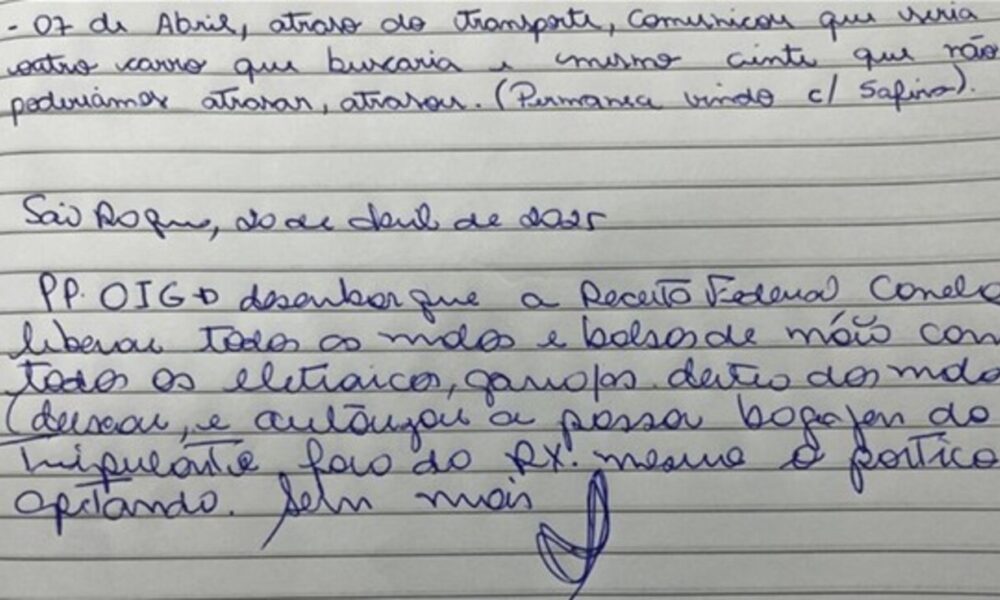 - 07 de Abril, atraso do transporte, comunicou que seria
outro carro que buscaria e mesmo cinte que não
poderiamos atrasar, atrasou. (Permanea vindo c/ Safira).
São Roque, 20 de Abril de 2025
PP. OIG desembarque a Receita Federal
liberou todos as malas e bolsas de mão com
todos os eletraicos, garrafas dentro das mala
(deixou, e autorizou a passar bagajen do
tripulante fora do RX. mesmo o portico
apitando. Sem mais